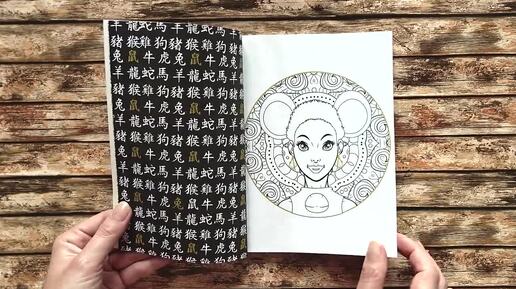 羊龍蛇馬羊龍蛇馬
豬猴雞狗豬猴雞狗
兔鼠牛虎兔鼠牛虎
羊龍蛇馬羊龍蛇馬
豬猴雞狗豬猴雞狗
兔鼠牛虎兔鼠牛虎
羊龍蛇馬羊龍蛇馬
豬猴雞狗豬猴雞狗
兔鼠牛虎兔鼠牛虎
羊龍蛇馬羊龍蛇馬
豬猴雞狗豬猴雞狗
兔鼠牛虎兔鼠牛虎
牛羊龍蛇馬
豬猴雞狗豬猴雞狗
鼠牛虎兔鼠牛虎